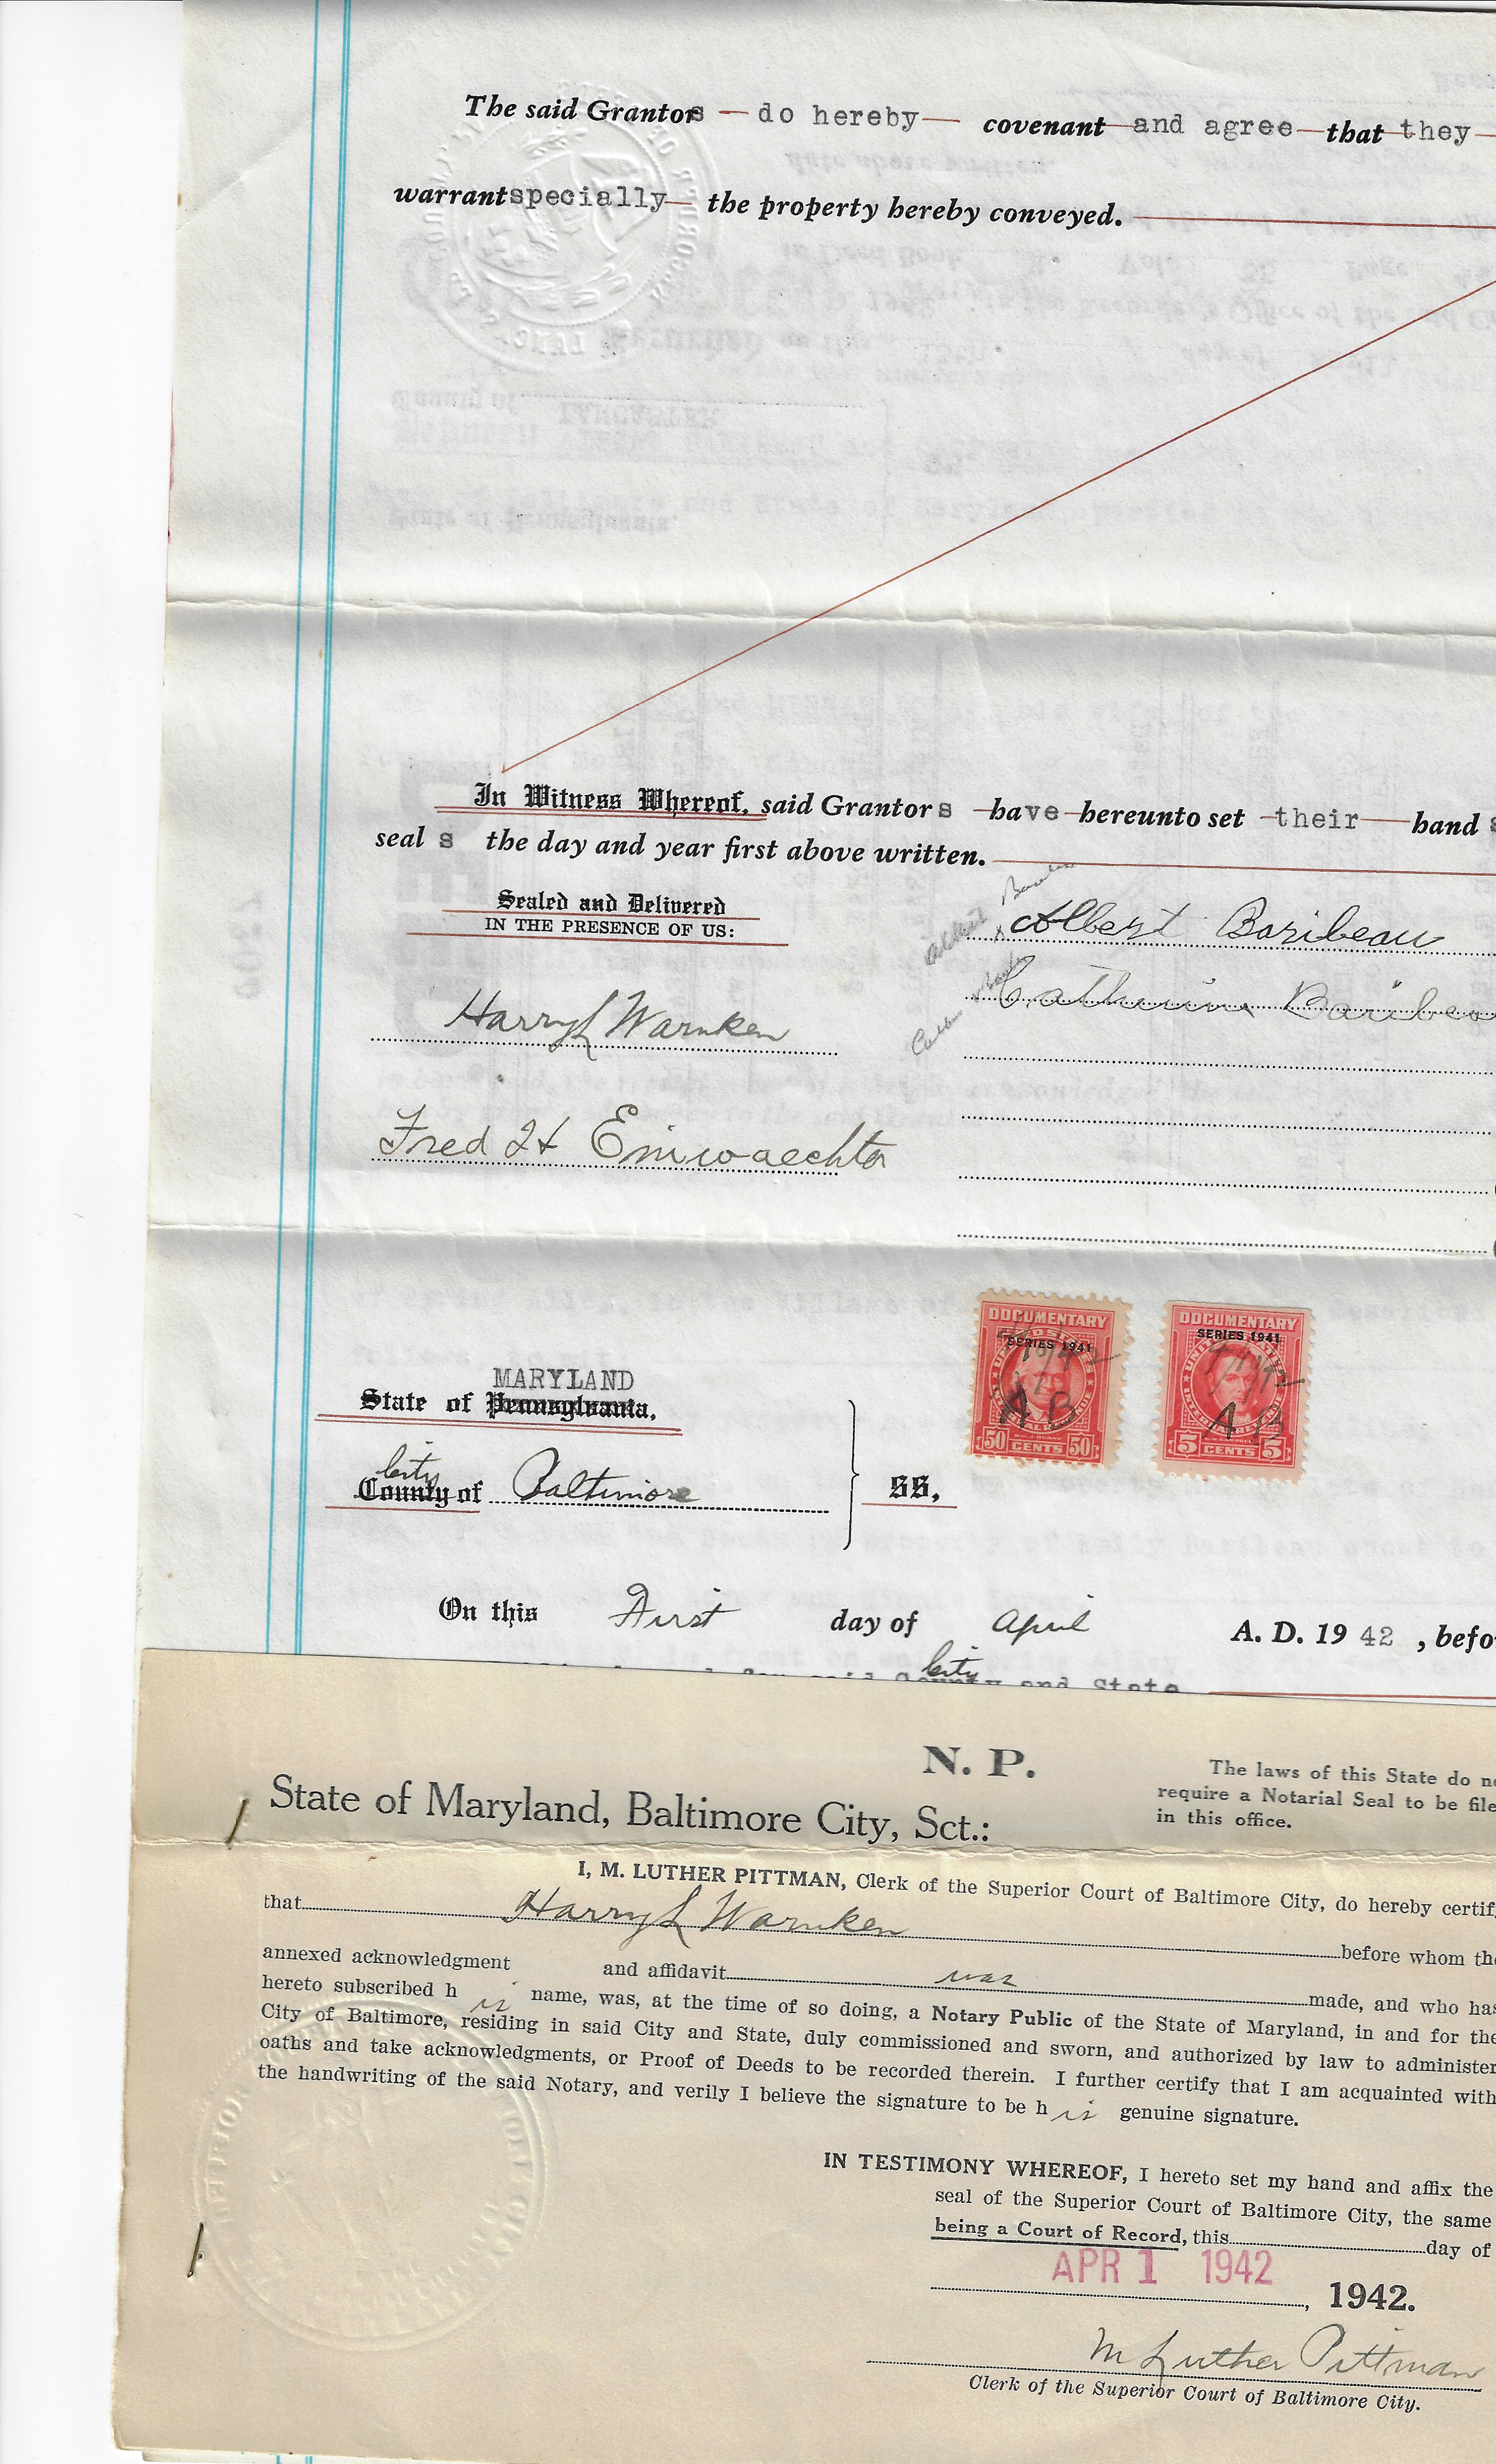 The said Grantors do hereby covenant and agree that they
warrant specially the property hereby conveyed.
In Witness Whereof, said Grantor s have hereunto set their hand s
seal s the day and year first above written.
Sealed and Delivered
IN THE PRESENCE OF US:
Albert Baribeau
Catherine Baribeau
Harry L Warnken
Fred H Einwaechter
DOCUMENTARY
SERIES 1941
A B
50 CENTS 50
DOCUMENTARY
SERIES 1941
A B
5 CENTS 5
MARYLAND
State of Pennsylvania,
City
County of Baltimore
SS,
On this First day of April A. D. 19 42 , befo
City
for said County and State
N. P.
The laws of this State do no
require a Notarial Seal to be file
in this office.
State of Maryland, Baltimore City, Sct.:
I, M. LUTHER PITTMAN, Clerk of the Superior Court of Baltimore City, do hereby certif
that Harry L Warnken before whom the
annexed acknowledgment and affidavit was made, and who has
hereto subscribed h is name, was, at the time of so doing, a Notary Public of the State of Maryland, in and for the
City of Baltimore, residing in said City and State, duly commissioned and sworn, and authorized by law to administer
oaths and take acknowledgments, or Proof of Deeds to be recorded therein. I further certify that I am acquainted with
the handwriting of the said Notary, and verily I believe the signature to be h is genuine signature.
IN TESTIMONY WHEREOF, I hereto set my hand and affix the
seal of the Superior Court of Baltimore City, the same
being a Court of Record, this day of
APR 1 1942
, 1942.
M Luther Pittman
Clerk of the Superior Court of Baltimore City.